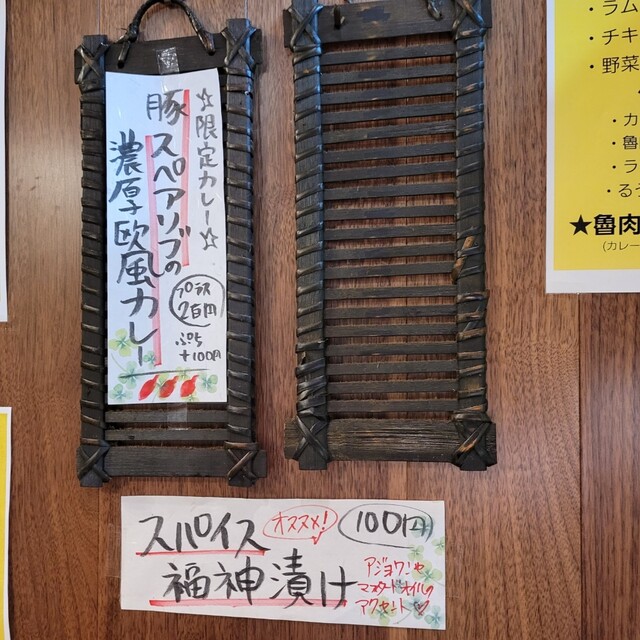 ☆限定カレー☆
豚スペアリブの
濃厚欧風カレー
2百円
ぷち
+100円
スパイス
オススメ!
100円
福神漬け
アジョワンや
マスタードオイルの
アクセント♡
・ラム
・チキ
・野菜
・カ
・魯
・ラ
・るう
★魯肉
(カレー